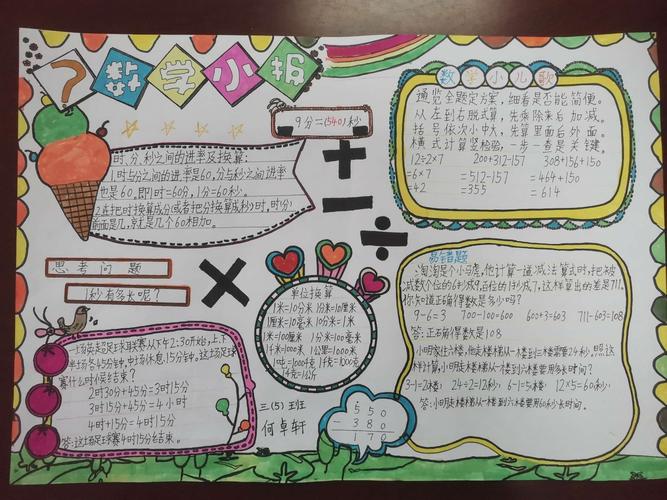 数学小报
9分=(540)秒
时、分、秒之间的进率及换算:
1.时与分之间的进率是60,分与秒之间进率
也是60.即1时=60分,1分=60秒.
2.在把时换算成分(或者把分换算成秒)时,时(分)
前面是几,就是几个60相加.
思考问题
1秒有多长呢?
一场英超足球联赛从下午2:30开始,上下
半场各45分钟,中场休息15分钟,这场足球
赛什么时候结束?
2时30分+45分=3时15分
3时15分+45分=4小时
4时+15分=4时15分
答:这场足球赛4时15分结束.
单位换算
1米=10分米 1分米=10厘米
1厘米=10毫米 10分米=1米
1米=100厘米 1分米=100毫米
1千米=1000米 1公里=1000米
1吨=1000千克 1千克=1000克
三(5)班
何卓轩
550
- 380
170
数学小儿歌
通览全题定方案,细看是否能简便。
从左到右脱式算,先乘除来后加减。
括号依次小中大,先算里面后外面。
横式计算竖检验,一步一查是关键。
12÷2×7 200+312-157 308+156+150
=6×7 =512-157 =464+150
=42 =355 =614
易错题
淘淘是个小马虎,他计算一道减法算式时,把被
减数个位的6抄成9,百位的1抄成7,这样算出的差是711.
你知道正确得数是多少吗?
9-6=3 700-100=600 600+3=603 711-603=108
答:正确得数是108
小明家住六楼,他走楼梯从一楼到三楼需要24秒.照这
样计算,小明走楼梯从一楼到六楼要用多长时间?
3-1=2(楼) 24÷2=12(秒) 6-1=5(楼) 12×5=60(秒)
答:小明走楼梯从一楼到六楼要用60秒长时间.